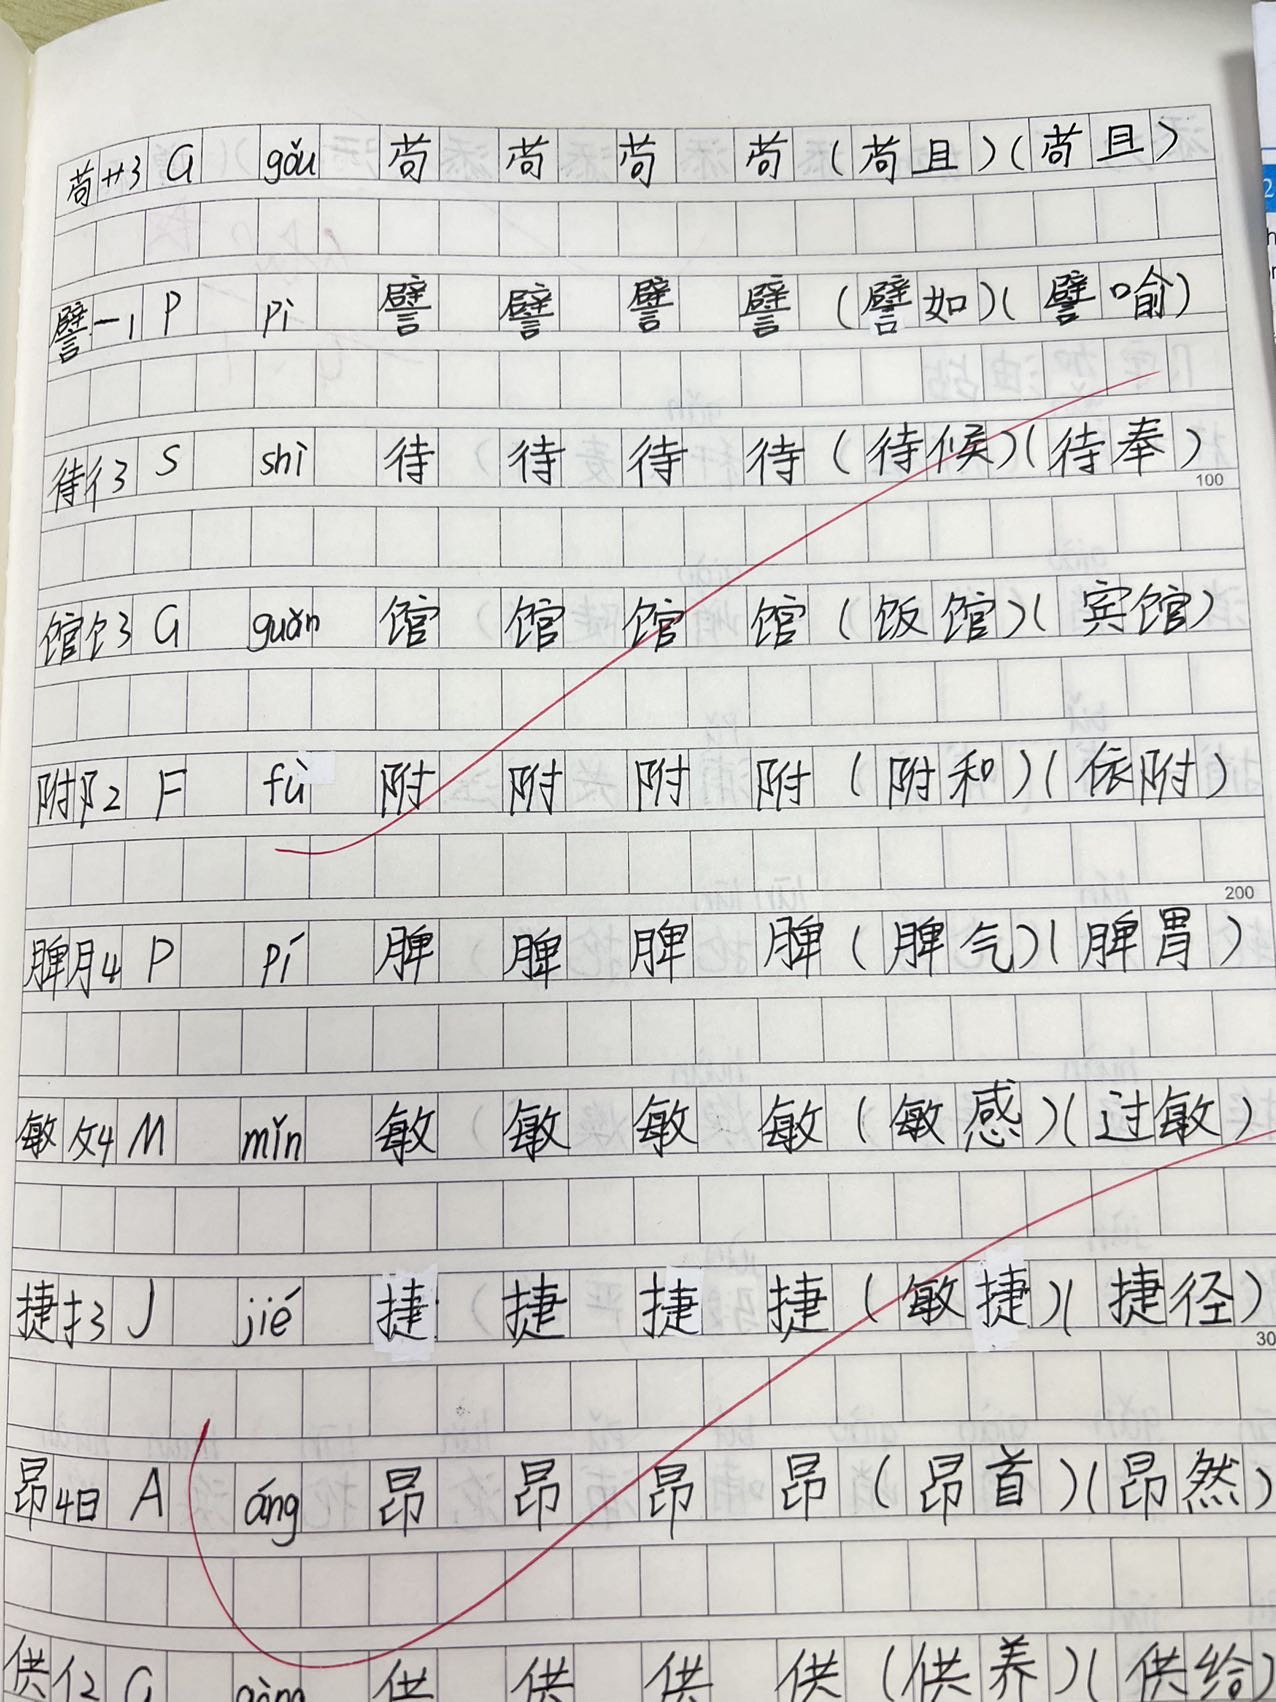 苟艹3 G gǒu 苟 苟 苟 苟 (苟且)(苟且)
譬一1 P pì 譬 譬 譬 譬 (譬如)(譬喻)
待彳3 S shì 待 待 待 待 (待候)(待奉)
100
馆饣3 G guǎn 馆 馆 馆 馆 (饭馆)(宾馆)
附阝2 F fù 附 附 附 附 (附和)(依附)
200
脾月4 P pí 脾 脾 脾 脾 (脾气)(脾胃)
敏攵4 M mǐn 敏 敏 敏 敏 (敏感)(过敏)
捷扌3 J jié 捷 捷 捷 捷 (敏捷)(捷径)
30
昂4日 A áng 昂 昂 昂 昂 (昂首)(昂然)
供亻2 G gòng 供 供 供 供 (供养)(供给)